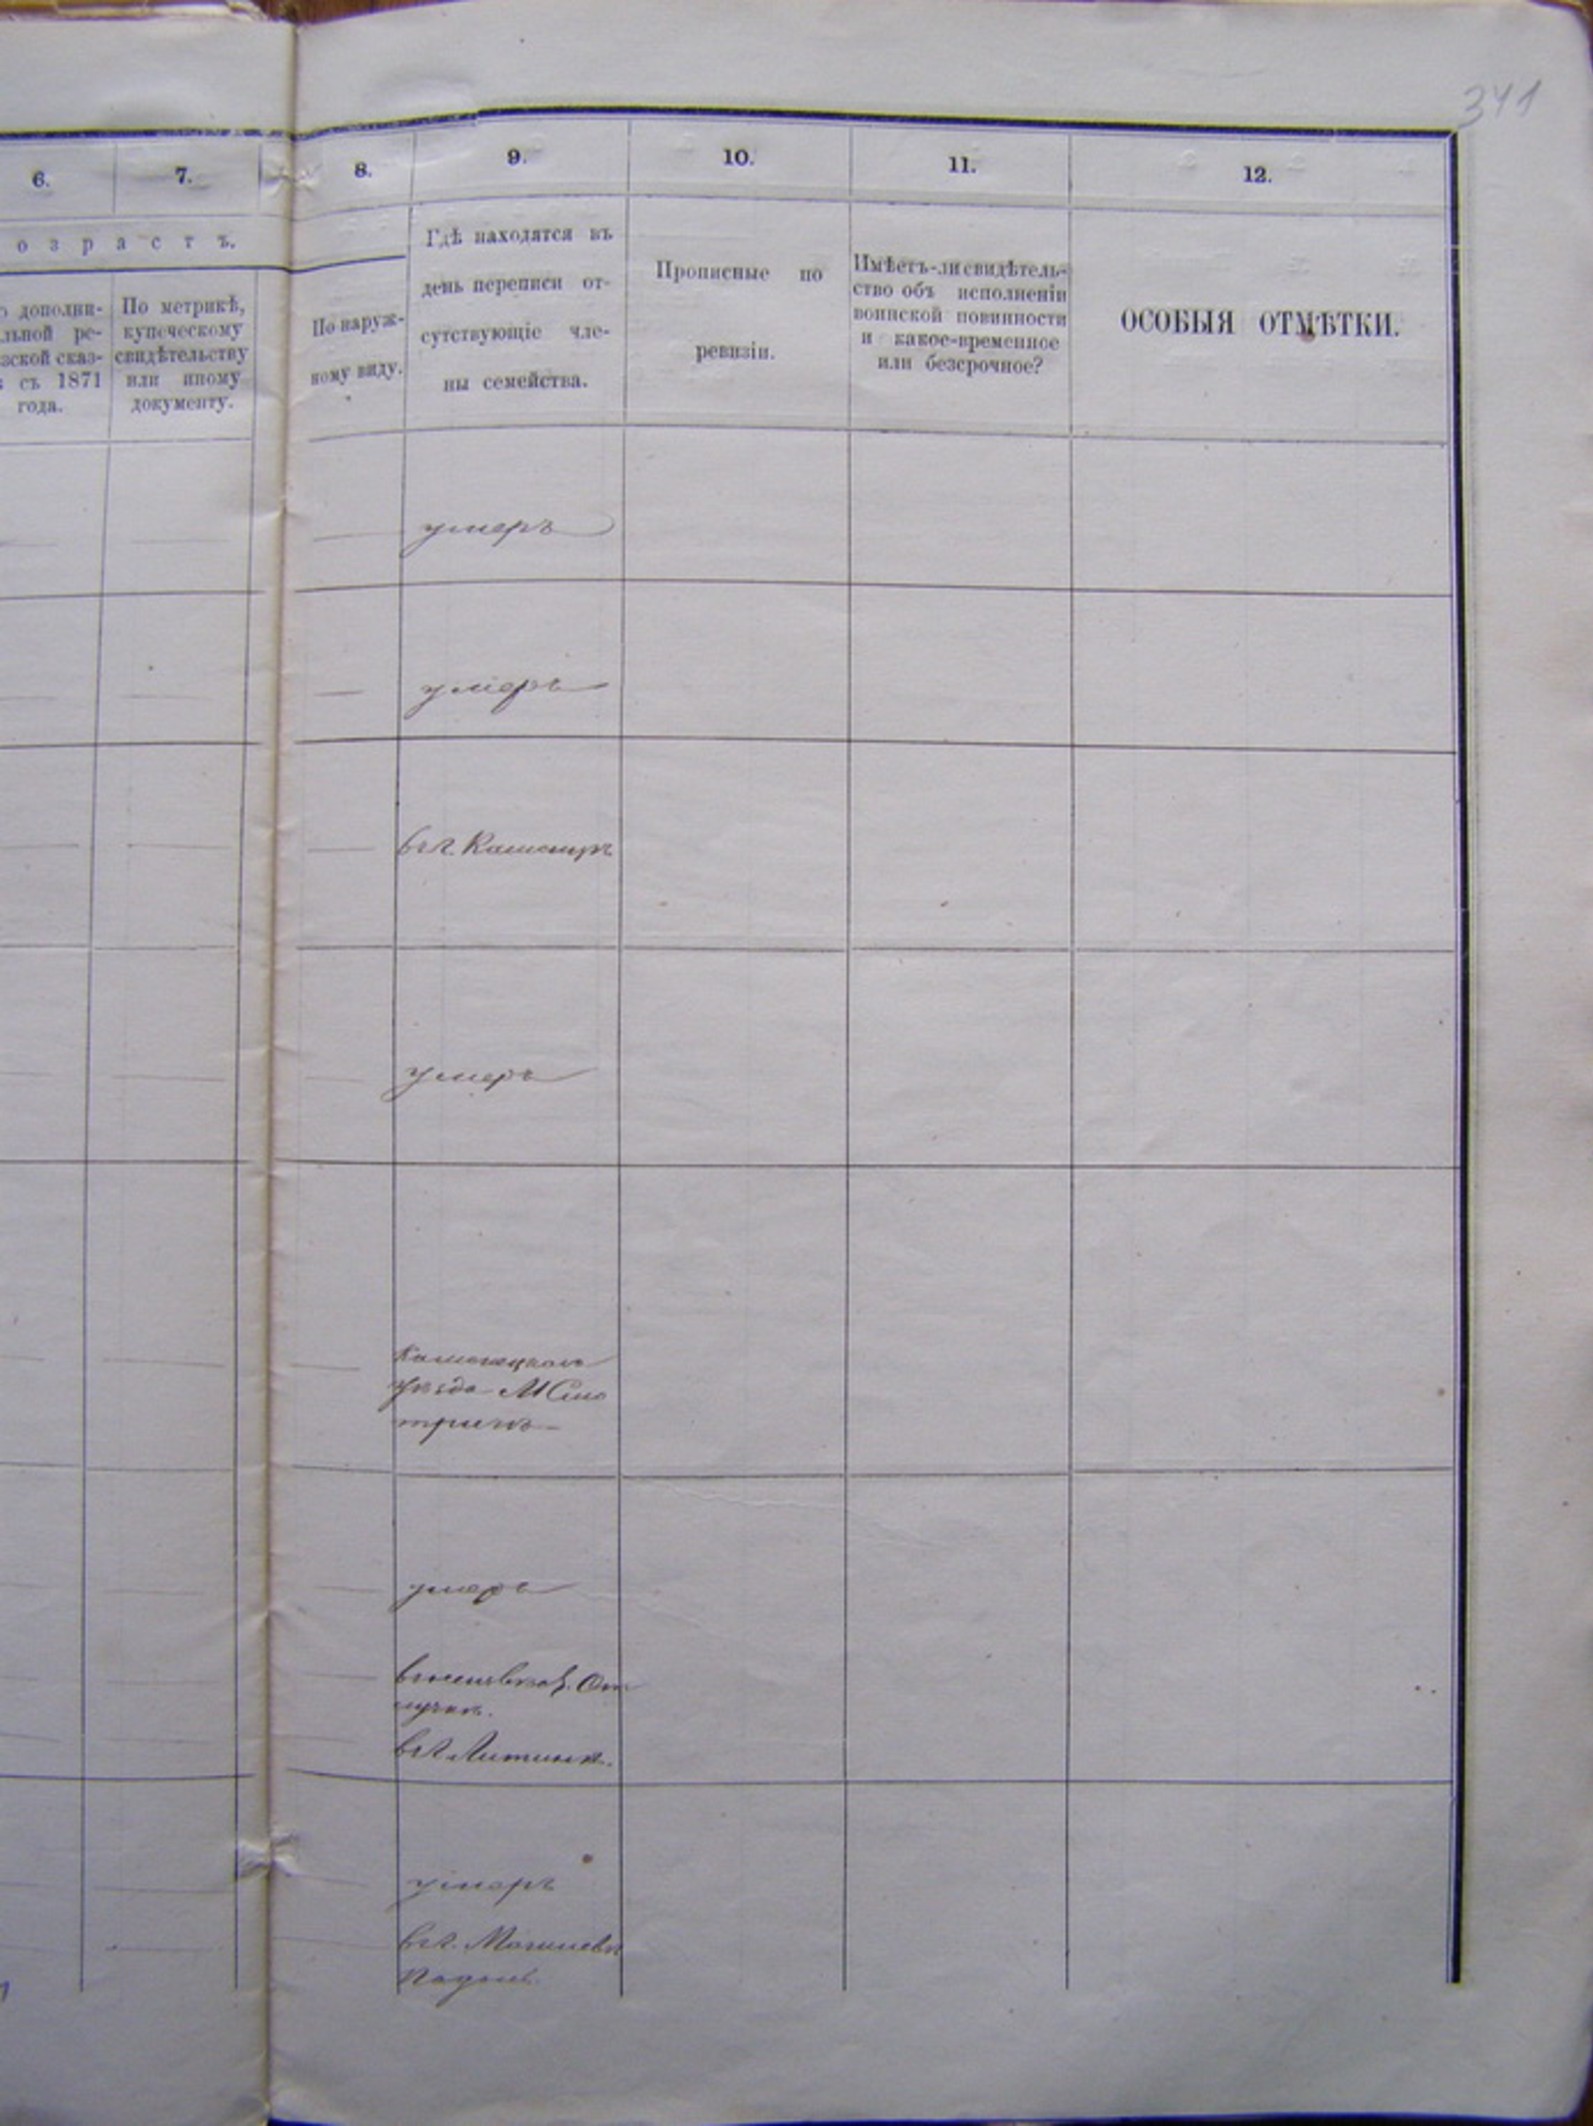 341
6.
7.
8.
9.
10.
11.
12.
озрастъ.
дополни-
льной ре-
зской сказ-
съ 1871
года.
По метрикѣ,
купеческому
свидѣтельству
или иному
документу.
По наруж-
ному виду.
Гдѣ находятся въ
день переписи от-
сутствующіе чле-
ны семейства.
Прописные по
ревизіи.
Имѣетъ-ли свидѣтель-
ство объ исполненіи
воинской повинности
и какое-временное
или безсрочное?
ОСОБЫЯ ОТМѢТКИ.
умеръ
умеръ
въ г.
умеръ
уѣзда М Смо
тричъ
умеръ
От
лучкѣ.
въ г. Литинѣ.
умеръ
въ г. Могилевѣ